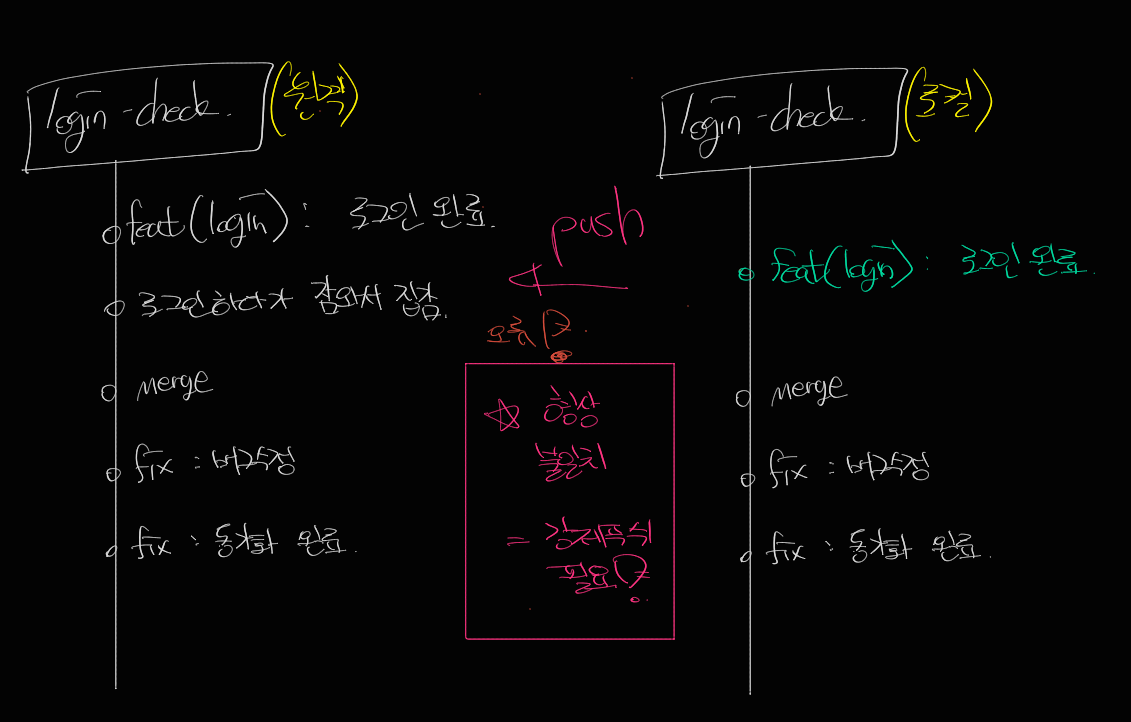 login-check.
(원격)
feat(login): 로그인 완료.
로그인하다가 잠와서 집감.
merge
fix : 버그수정
fix : 동기화 완료.
push
오류!?
☆ 항상
불일치
= 강제푸쉬
필요!?
login-check.
(로컬)
feat(login): 로그인 완료.
merge
fix : 버그수정
fix : 동기화 완료.